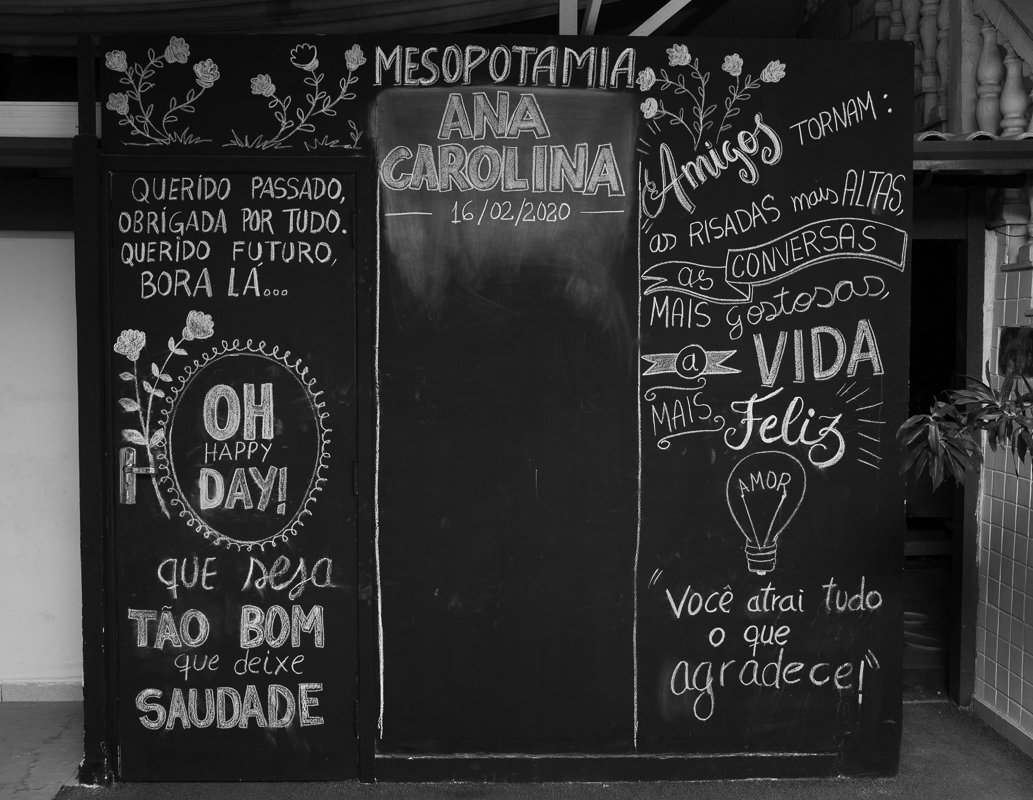 MESOPOTAMIA
ANA
CAROLINA
16/02/2020
QUERIDO PASSADO,
OBRIGADA POR TUDO.
QUERIDO FUTURO,
BORA LÁ...
OH
HAPPY
DAY!
que seja
TÃO BOM
que deixe
SAUDADE
Amigos TORNAM:
as RISADAS mais ALTAS,
as CONVERSAS
MAIS gostosas,
a VIDA
MAIS Feliz
AMOR
"Você atrai tudo
o que
agradece!"